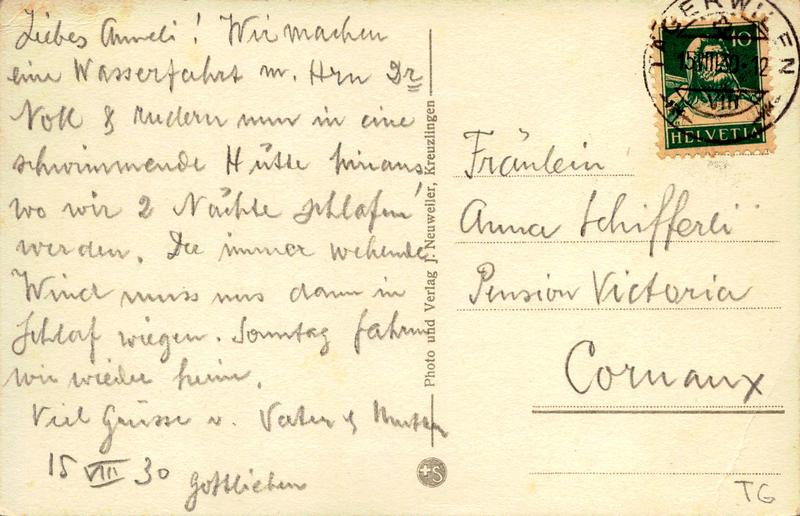 Liebes Anneli! Wir machen
eine Wasserfahrt m. Hrn Dr
Noll & rudern nun in eine
schwimmende Hütte hinaus
wo wir 2 Nächte schlafen
werden. Der immer wehende
Wind muss uns dann in
Schlaf wiegen. Sonntag fahren
wir wieder heim.
Viel Grüsse v. Vater & Mutter
15 VIII 30 Gottlieben
Photo und Verlag J. Neuweiler, Kreuzlingen
+S
TÄGERWILEN
15.VIII.30-12
VIII
10
HELVETIA
Fräulein
Anna Schifferli
Pension Victoria
Cornaux
TG